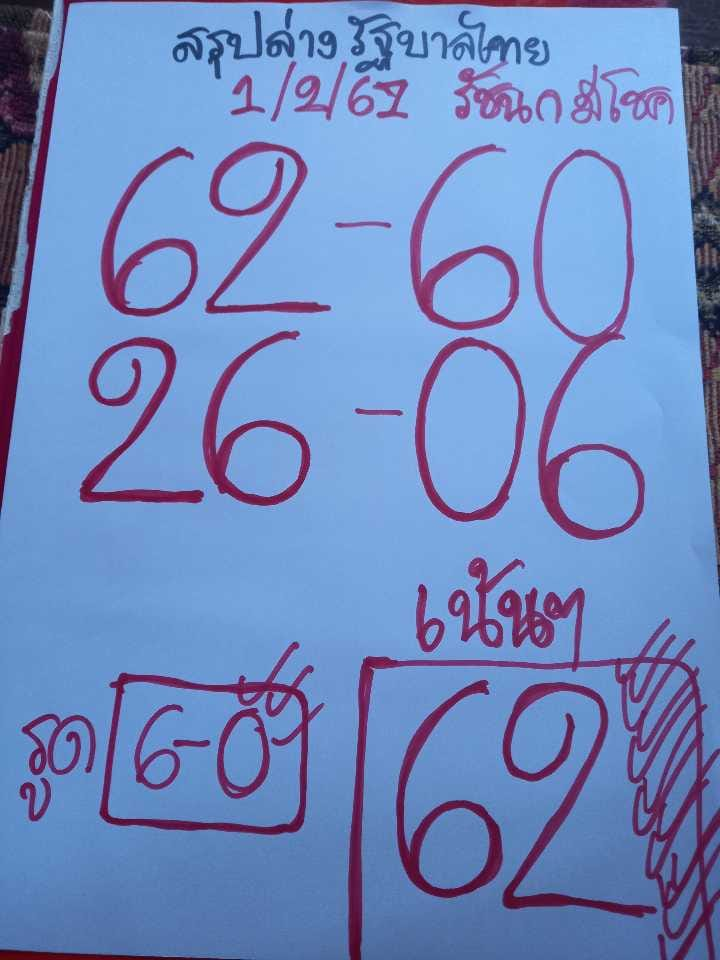 สรุปล่างรัฐบาลไทย
1/2/67 รัชนก มีโชค
62-60
26-06
เน้นๆ
รูด 6-0
62